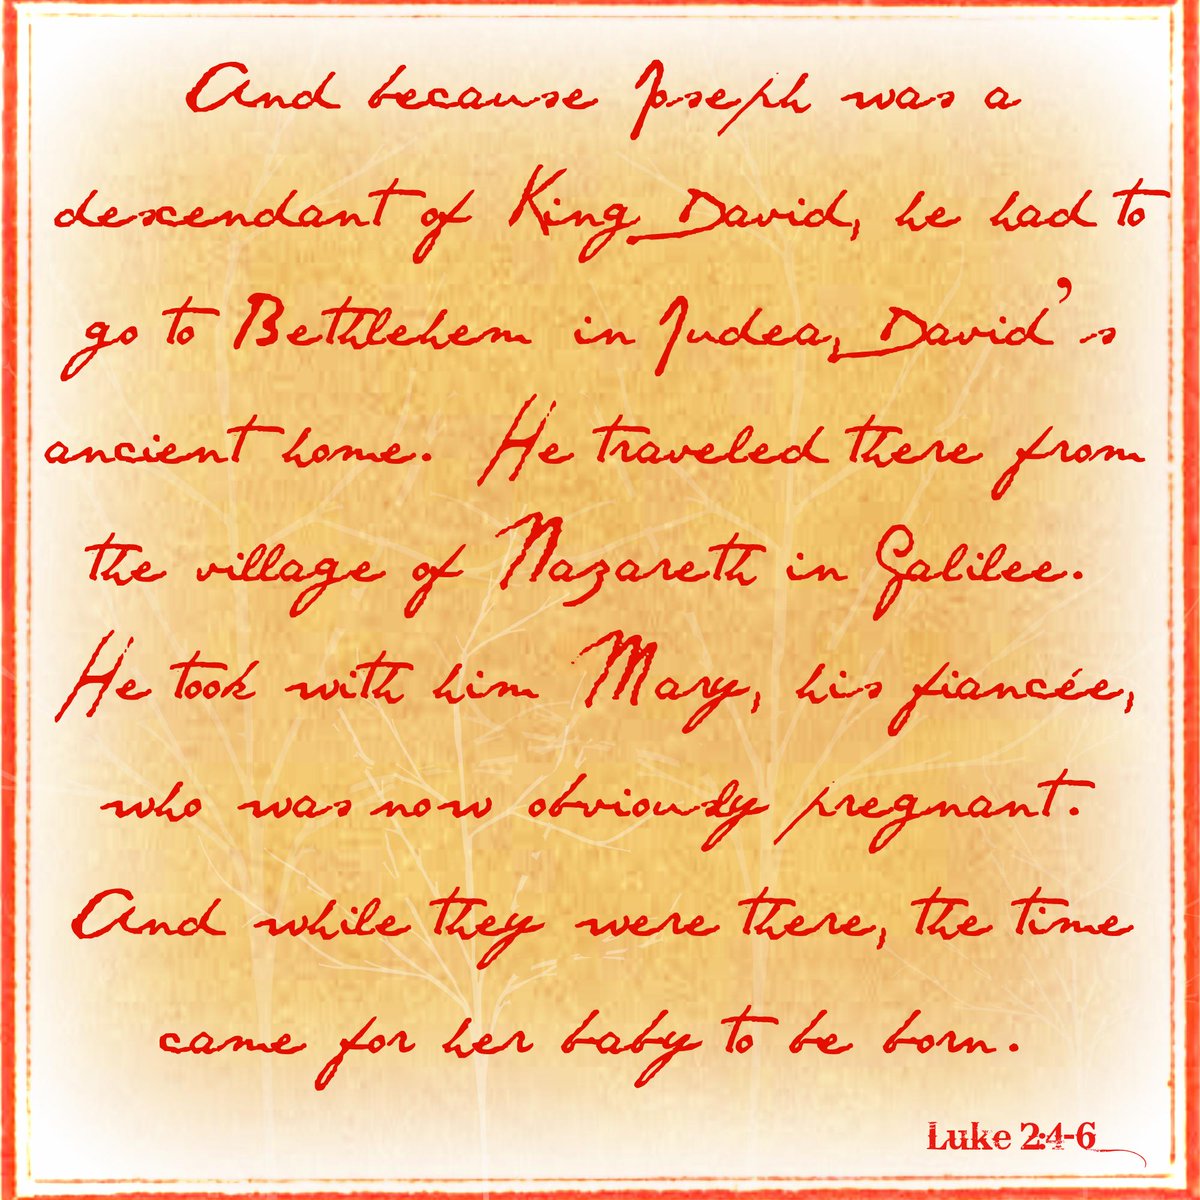 And because Joseph was a
descendant of King David, he had to
go to Bethlehem in Judea, David's
ancient home. He traveled there from
the village of Nazareth in Galilee.
He took with him Mary, his fiancée,
who was now obviously pregnant.
And while they were there, the time
came for her baby to be born.
Luke 2:4-6